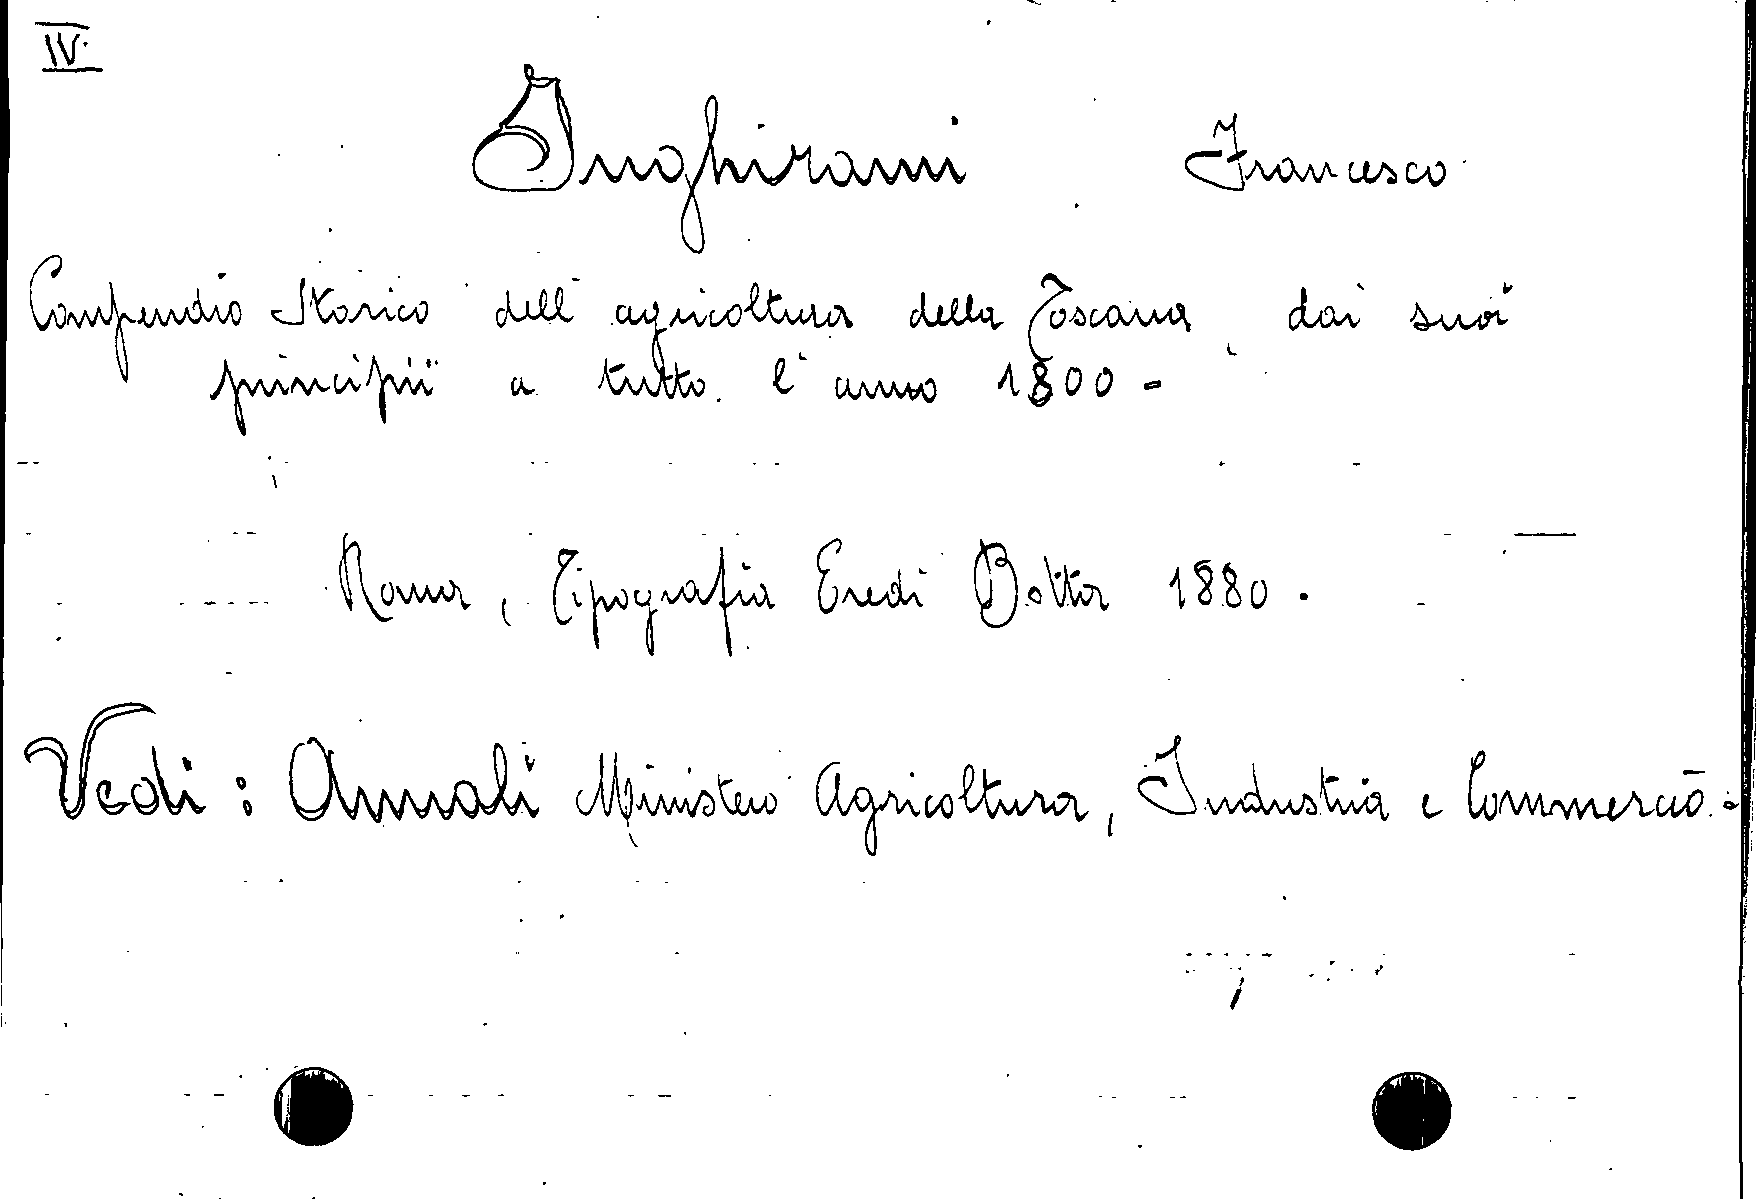 IV.
Inghirami Francesco
Compendio Storico dell' agricoltura della Toscana dai suoi
principii a tutto l' anno 1800 -
Roma, Tipografia Eredi Botta 1880.
Vedi: Annali Ministero Agricoltura, Industria e Commercio.-